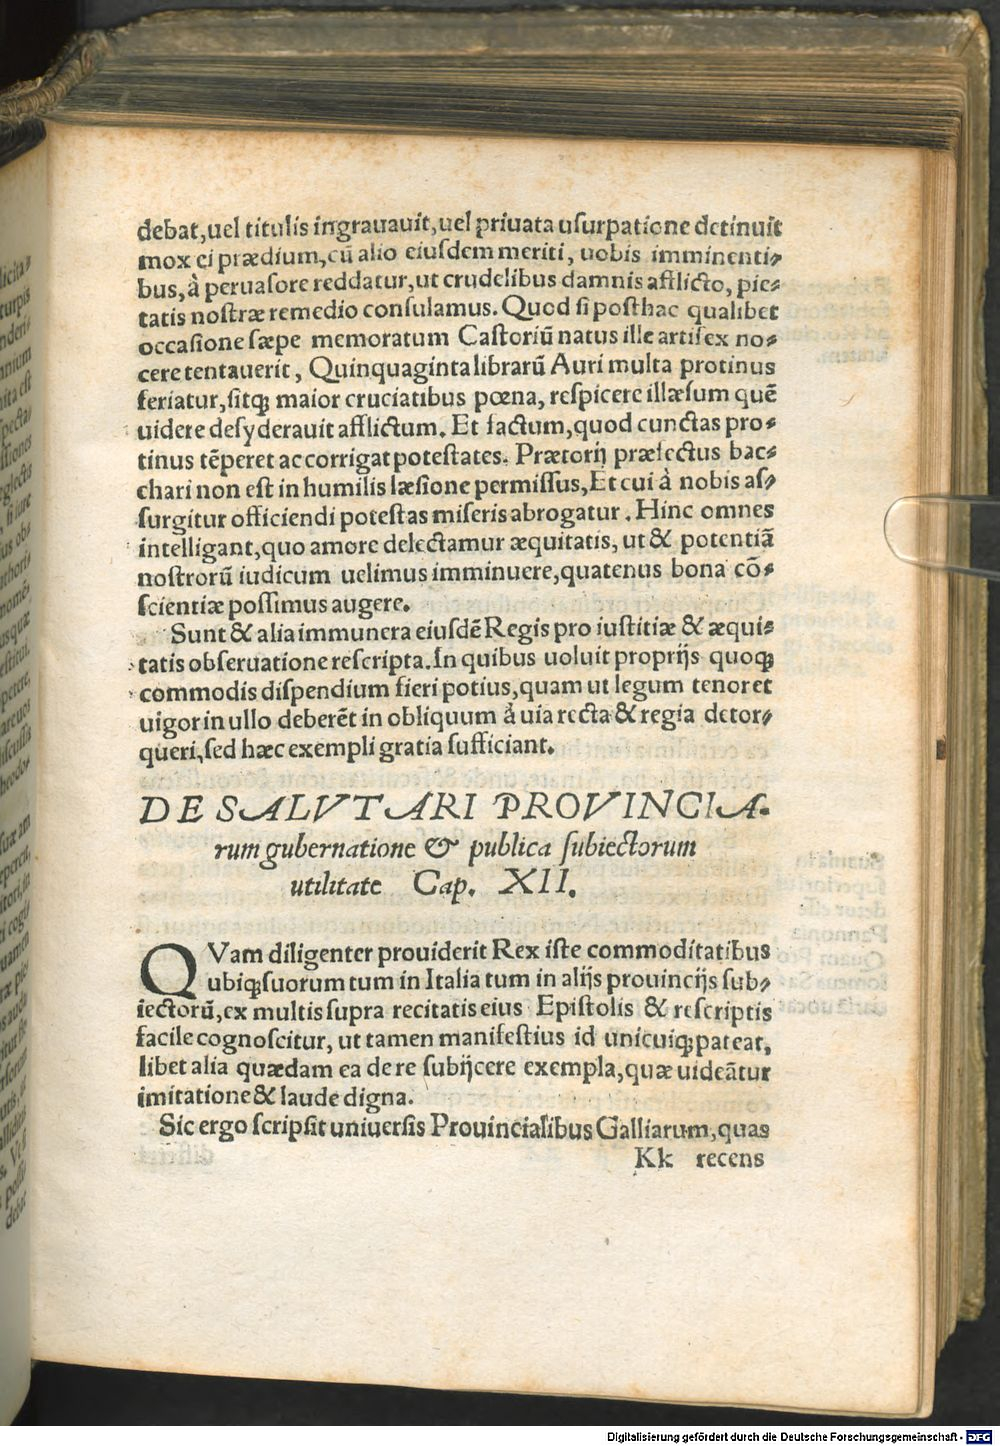 debat,uel titulis ingrauauit,uel priuata uſurpatione detinuit
mox ei prædium,cū alio eiuſdem meriti, uobis imminenti⸗
bus,à peruaſore reddatur,ut crudelibus damnis afflicto, pie⸗
tatis noſtræ remedio conſulamus. Quod ſi poſthac qualibet
occaſione ſæpe memoratum Caſtoriū natus ille artifex no⸗
cere tentauerit, Quinquaginta librarū Auri multa protinus
feriatur,ſitq; maior cruciatibus pœna, reſpicere illæſum quē
uidere deſyderauit afflictum. Et factum,quod cunctas pro⸗
tinus tēperet ac corrigat poteſtates. Prætorij præfectus bac⸗
chari non eſt in humilis læſione permiſſus,Et cui à nobis aſ⸗
ſurgitur officiendi poteſtas miſeris abrogatur. Hinc omnes
intelligant,quo amore delectamur æquitatis, ut & potentiā
noſtrorū iudicum uelimus imminuere,quatenus bona cō⸗
ſcientiæ poſſimus augere.
Sunt & alia immunera eiuſdē Regis pro iuſtitiæ & æqui⸗
tatis obſeruatione reſcripta. In quibus uoluit proprijs quoq;
commodis diſpendium fieri potius,quam ut legum tenor et
uigor in ullo deberēt in obliquum à uia recta & regia detor⸗
queri,ſed hæc exempli gratia ſufficiant.
DE SALVTARI PROVINCIA.
rum gubernatione & publica ſubiectorum
utilitate Cap. XII.
QVam diligenter prouiderit Rex iſte commoditatibus
ubiq;ſuorum tum in Italia tum in alijs prouincijs ſub⸗
iectorū,ex multis ſupra recitatis eius Epiſtolis & reſcriptis
facile cognoſcitur, ut tamen manifeſtius id unicuiq;pateat,
libet alia quædam ea de re ſubijcere exempla,quæ uideātur
imitatione & laude digna.
Sic ergo ſcripſit uniuerſis Prouincialibus Galliarum,quas
Kk recens
Digitalisierung gefördert durch die Deutsche Forschungsgemeinschaft - DFG